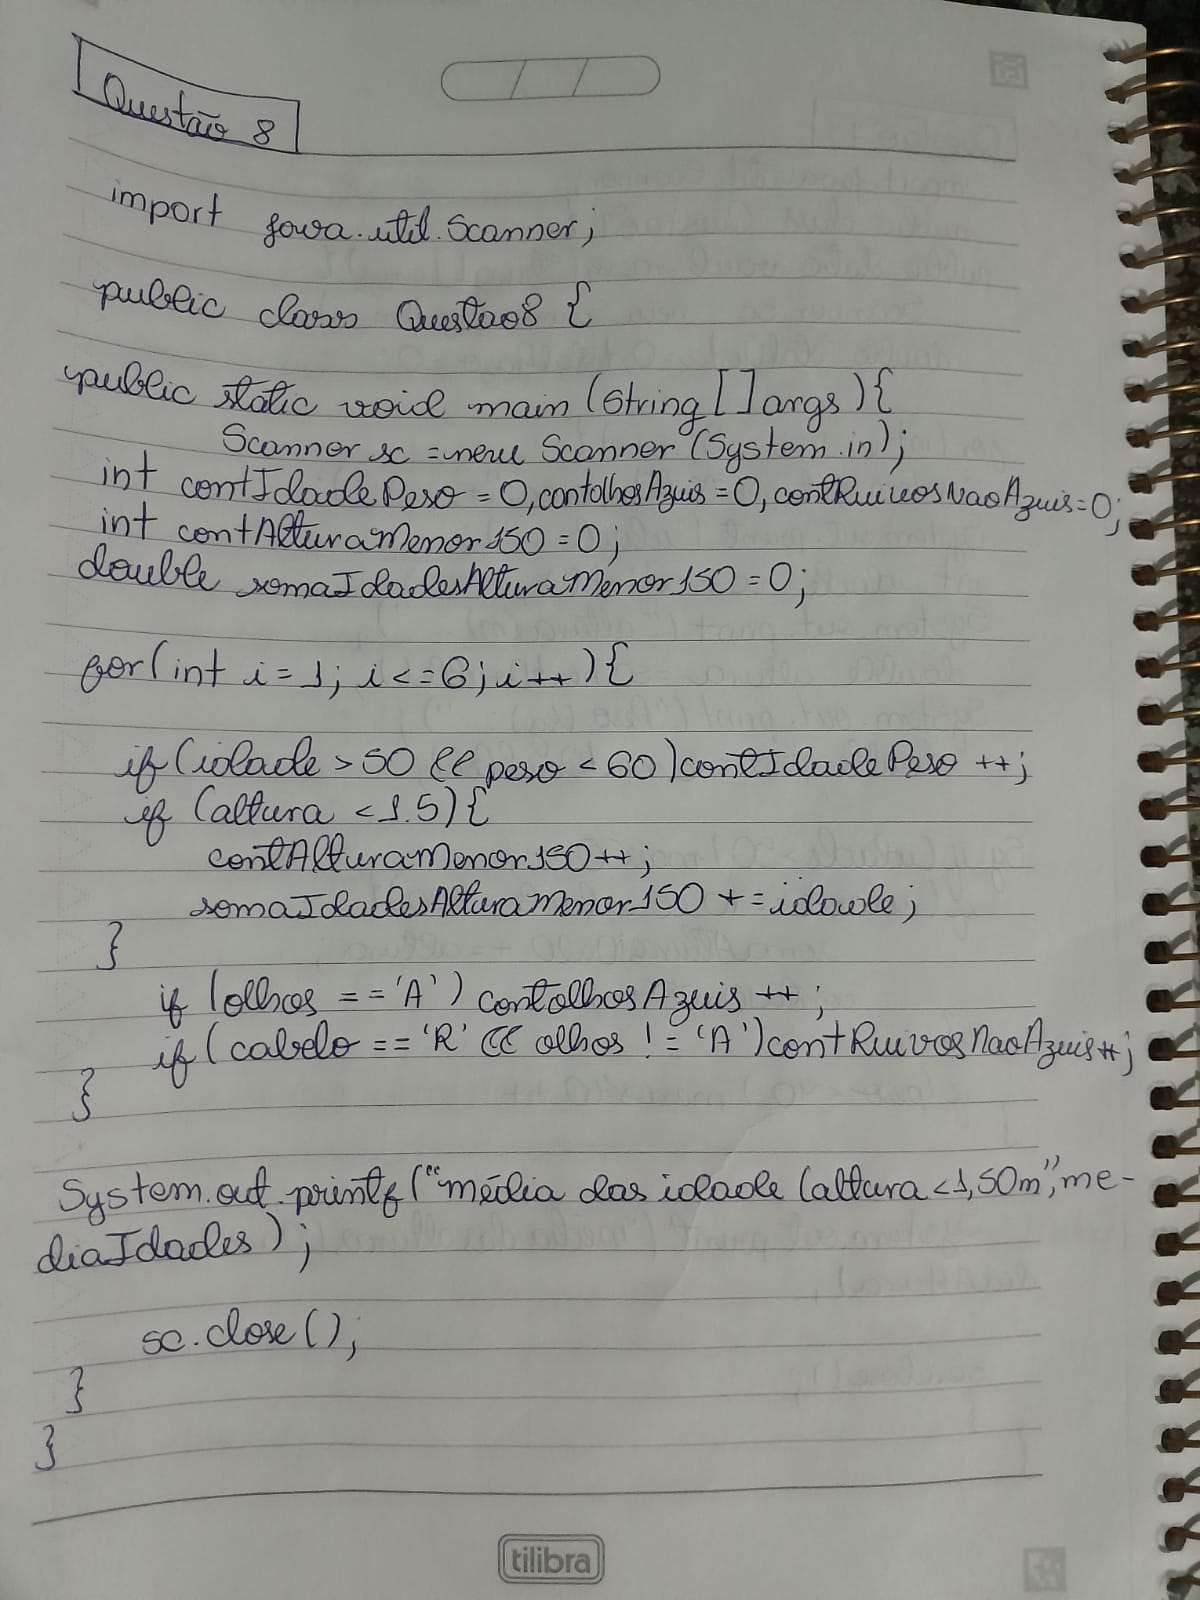 Questão 8
import java.util.Scanner;
public class Questao8 {
public static void main (String[] args){
Scanner sc = new Scanner (System.in);
int contIdadePeso = 0, contolhosAzuis = 0, contRuivosNaoAzuis = 0;
int contAlturaMenor150 = 0;
double somaIdadesAlturaMenor150 = 0;
for(int i = 1; i <= 6; i++){
if (idade > 50 && peso < 60) contIdadePeso ++;
if (altura < 1.5){
contAlturaMenor150 ++;
somaIdadesAlturaMenor150 += idade;
}
if (olhos == 'A') contolhosAzuis ++;
if (cabelo == 'R' && olhos != 'A') contRuivosNaoAzuis++;
}
System.out.printf("média das idade (altura < 1,50m", me-
diaIdades);
sc.close();
}
}
tilibra